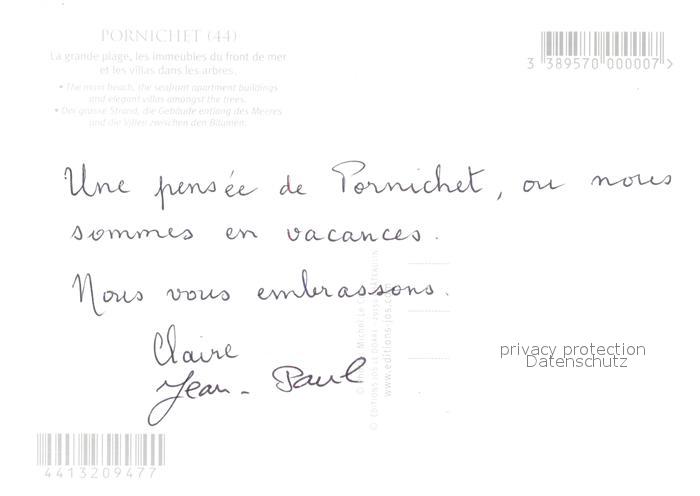 PORNICHET (44)
La grande plage, les immeubles du front de mer
et les villas dans les arbres.
• The main beach, the seafront apartment buildings
and elegant villas amongst the trees.
• Der grosse Strand, die Gebäude entlang des Meeres
und die Villen zwischen den Bäumen.
3 389570 000007 >
Une pensée de Pornichet, ou nous
sommes en vacances.
Nous vous embrassons.
Claire
Jean-Paul
www.editions-jos.com
privacy protection
Datenschutz
4413209477